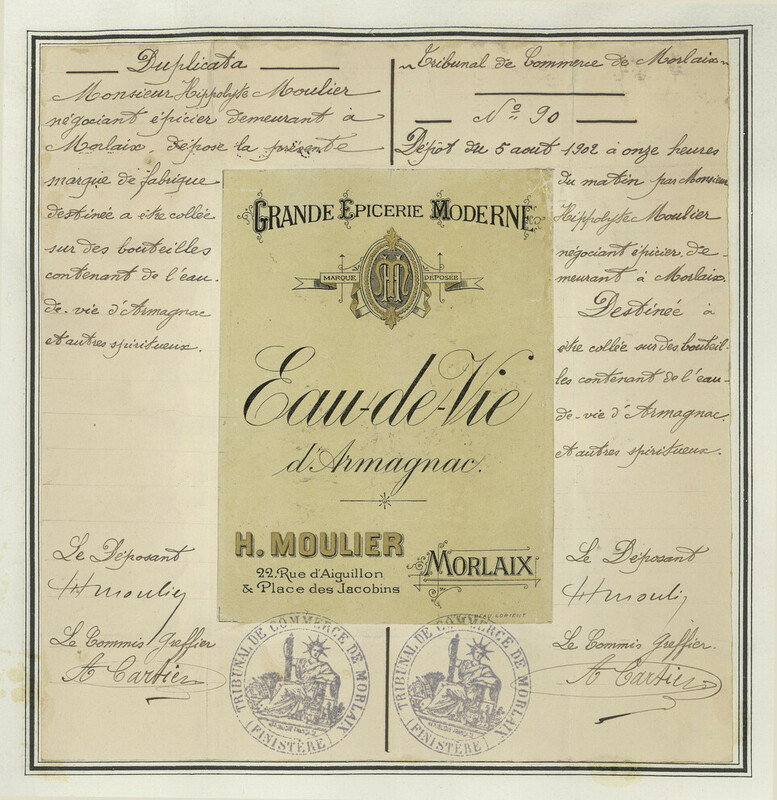 Duplicata
Monsieur Hippolyte Moulier
négociant épicier demeurant à
Morlaix, dépose la présente
marque de fabrique
destinée a être collée
sur des bouteilles
contenant de l'eau-
de-vie d'Armagnac
et autres spiritueux.
Le Déposant
HMoulier
Le Commis Greffier
A Cartier
Tribunal de Commerce de Morlaix
N° 90
Dépôt du 5 aout 1902 à onze heures
du matin par Monsieur
Hippolyte Moulier
négociant épicier, de-
meurant à Morlaix.
Destinée à
être collée sur des bouteil-
les contenant de l'eau-
de-vie d'Armagnac.
et autres spiritueux.
Le Déposant
HMoulier
Le Commis Greffier.
A Cartier
GRANDE EPICERIE MODERNE
MARQUE DÉPOSÉE
HM
Eau-de-Vie
d'Armagnac.
H. MOULIER
22, Rue d'Aiguillon
& Place des Jacobins
MORLAIX
LORIENT
TRIBUNAL DE COMMERCE DE MORLAIX
(FINISTÈRE)
TRIBUNAL DE COMMERCE DE MORLAIX
(FINISTÈRE)